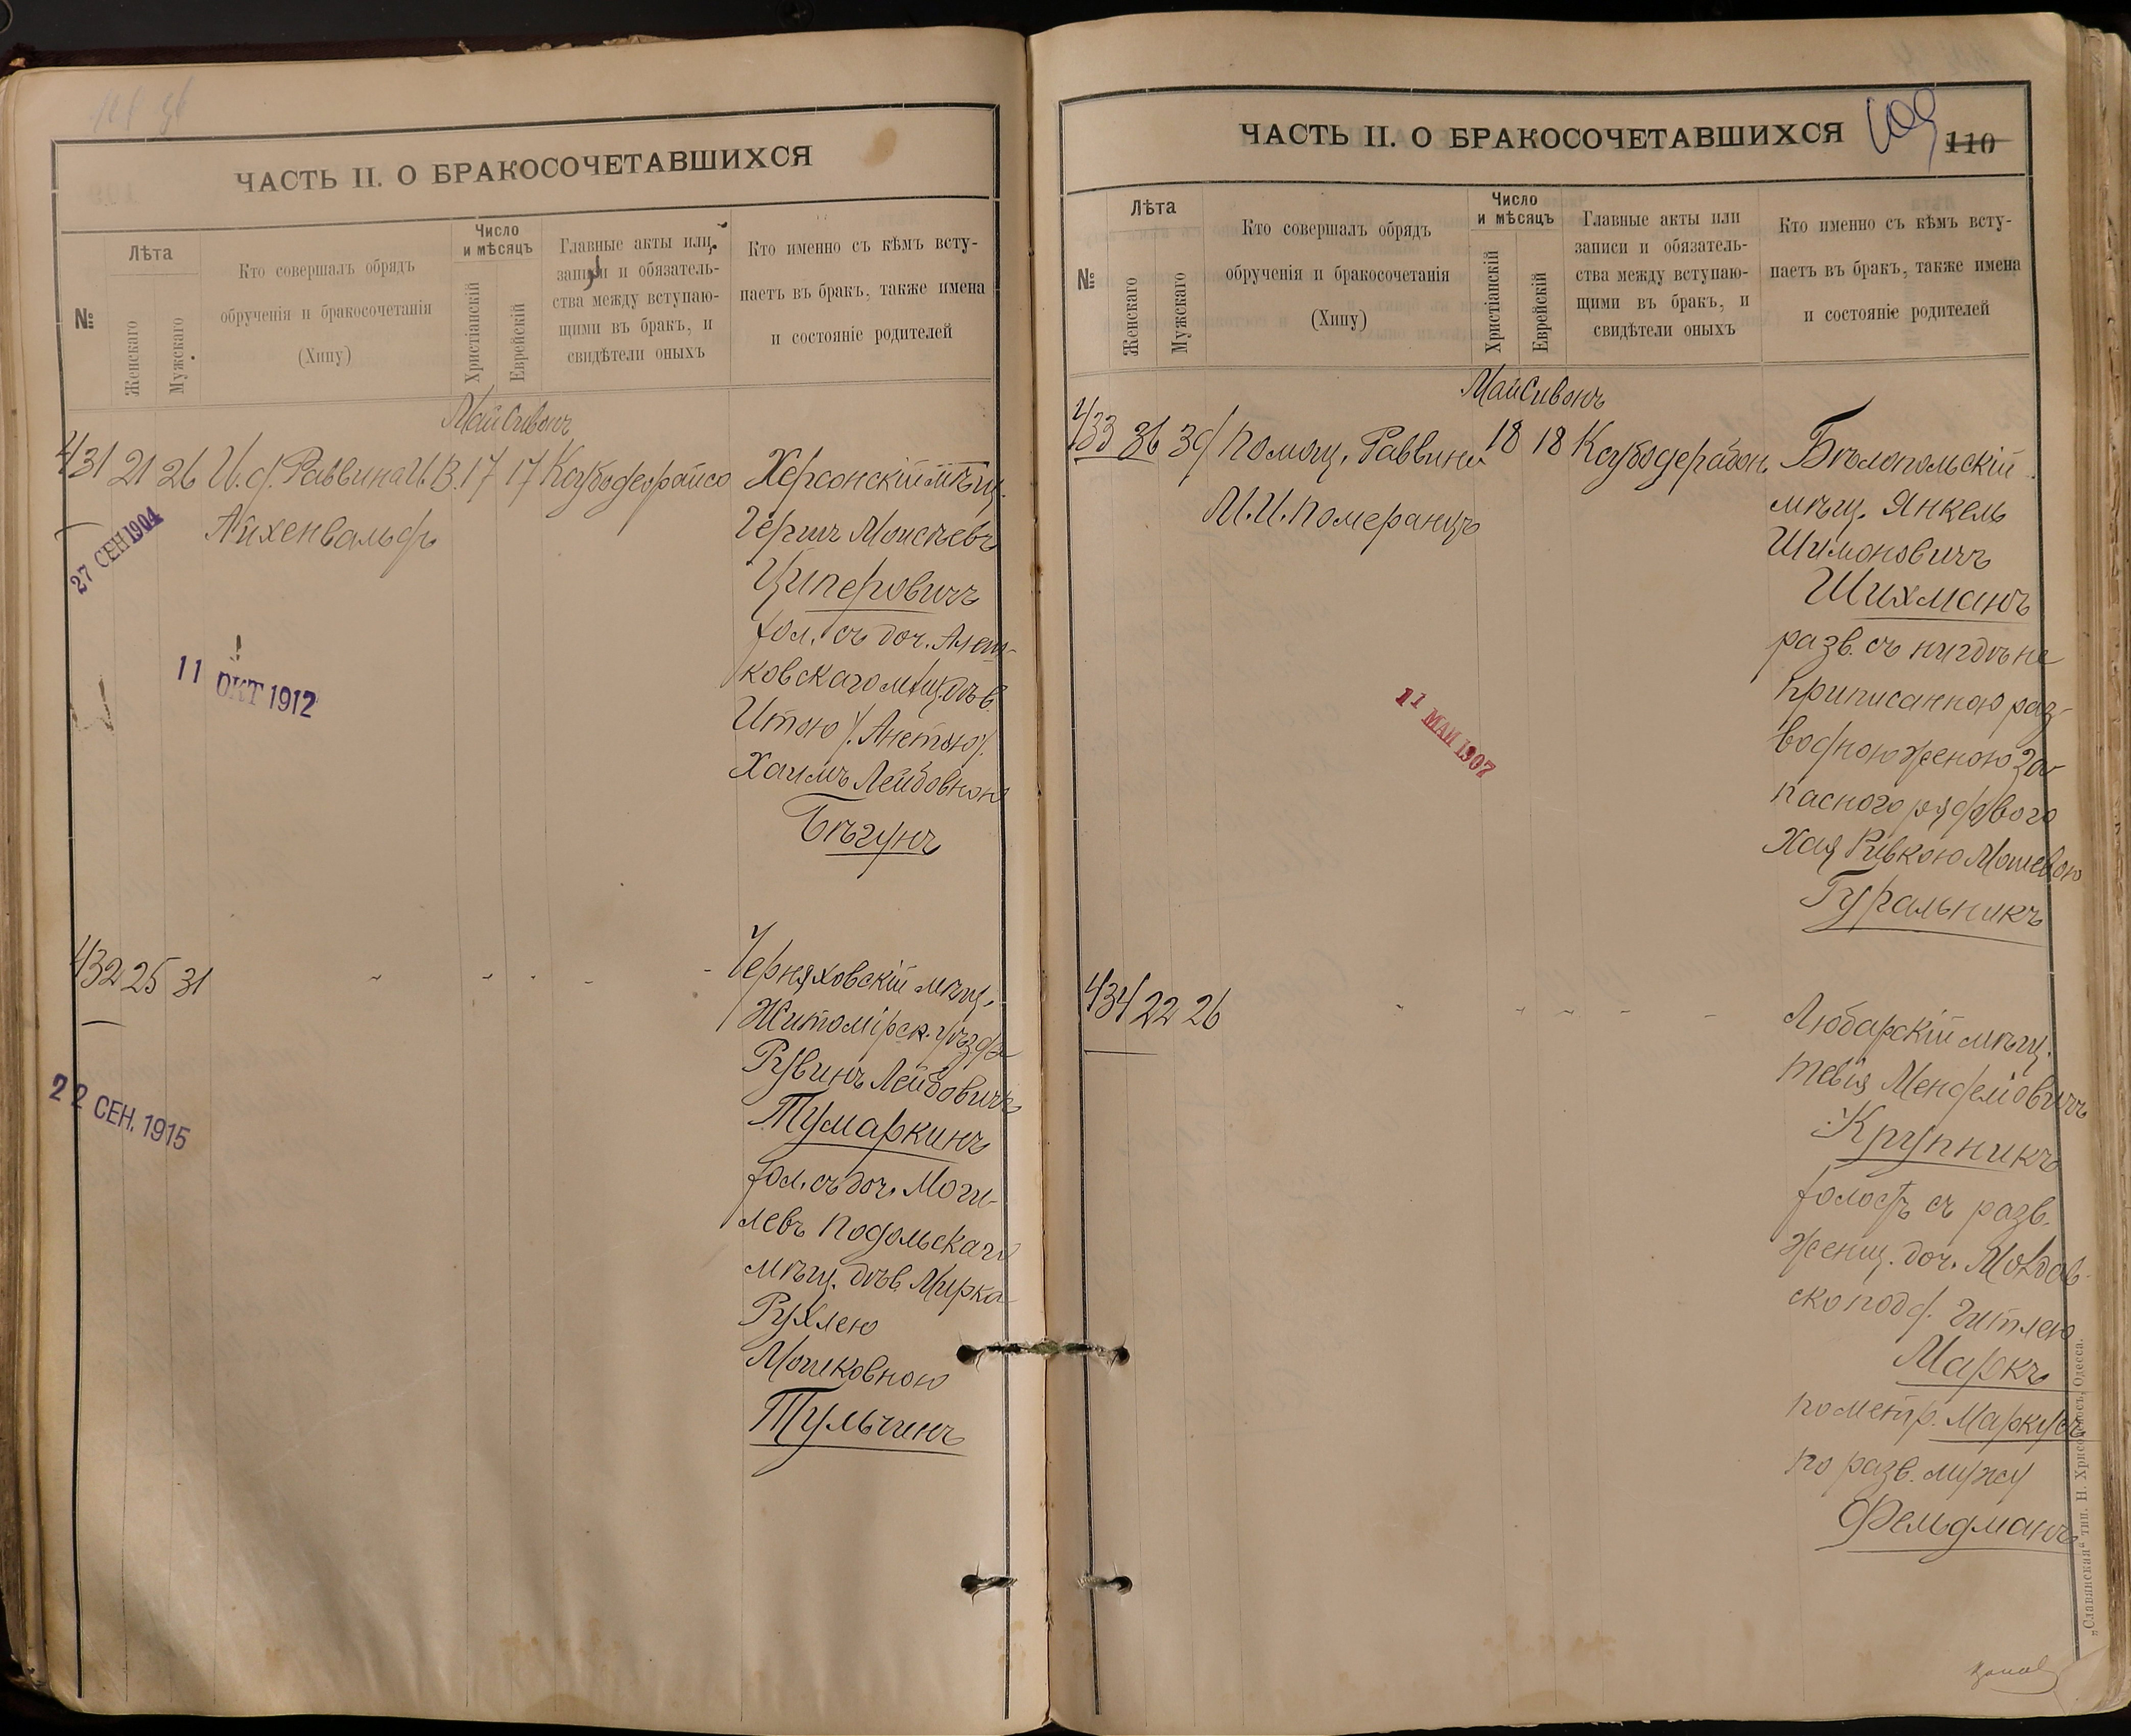 ЧАСТЬ II. О БРАКОСОЧЕТАВШИХСЯ
№
Лѣта
Женскаго
Мужскаго
Кто совершалъ обрядъ
обрученія и бракосочетанія
(Хипу)
Число
и мѣсяцъ
Христіанскій
Еврейскій
Главные акты или
записи и обязатель-
ства между вступаю-
щими въ бракъ, и
свидѣтели оныхъ
Кто именно съ кѣмъ всту-
паетъ въ бракъ, также имена
и состояніе родителей
Май Сивонъ
431 21 26 И. д. Раввина И. В. 17 17
Айхенвальдъ
Херсонскій мѣщ.
Гершъ Моисѣевъ
Циперовичъ
хол. съ доч. Алеш-
ковскаго мѣщ. дѣв.
Итою /. Анетою /.
Хаимъ Лейбовною
Бѣгунъ
27 СЕН 1904
11 ОКТ 1912
432 25 31 " " " " "
Черняховскій мѣщ.
Житомірск. уѣзда
Рувинъ Лейбовичъ
Тумаркинъ
хол. съ доч. Моги-
левъ Подольскаго
мѣщ. дѣв. Мирка
Рухлею
Мошковною
Тульчинъ
22 СЕН. 1915
ЧАСТЬ II. О БРАКОСОЧЕТАВШИХСЯ
109
110
№
Лѣта
Женскаго
Мужскаго
Кто совершалъ обрядъ
обрученія и бракосочетанія
(Хипу)
Число
и мѣсяцъ
Христіанскій
Еврейскій
Главные акты или
записи и обязатель-
ства между вступаю-
щими въ бракъ, и
свидѣтели оныхъ
Кто именно съ кѣмъ всту-
паетъ въ бракъ, также имена
и состояніе родителей
Май Сивонъ
433 36 39 Помощ. Раввина 18 18
М. И. Померанцъ
Бѣлопольскій
мѣщ. Янкель
Шимоновичъ
Шихманъ
разв. съ нигдѣ не
приписанною раз-
водною женою за-
паснаго рядового
Хая Ривкою Мошевою
Гуральникъ
11 МАЙ 1907
434 22 26 " " " " "
Любарскій мѣщ.
Тевія Менделовичъ
Крупникъ
холостъ съ разв.
женщ. доч. Молдав-
ско подд. Гитлею
Маркъ
по метр. Маркусъ
по разв. мужу
Фельдманъ
„Славянская" тип. Н. Хрисогелосъ, Одесса.